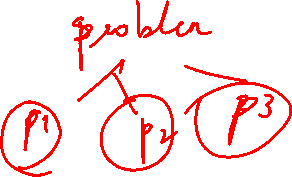 problem
p1 p2 p3